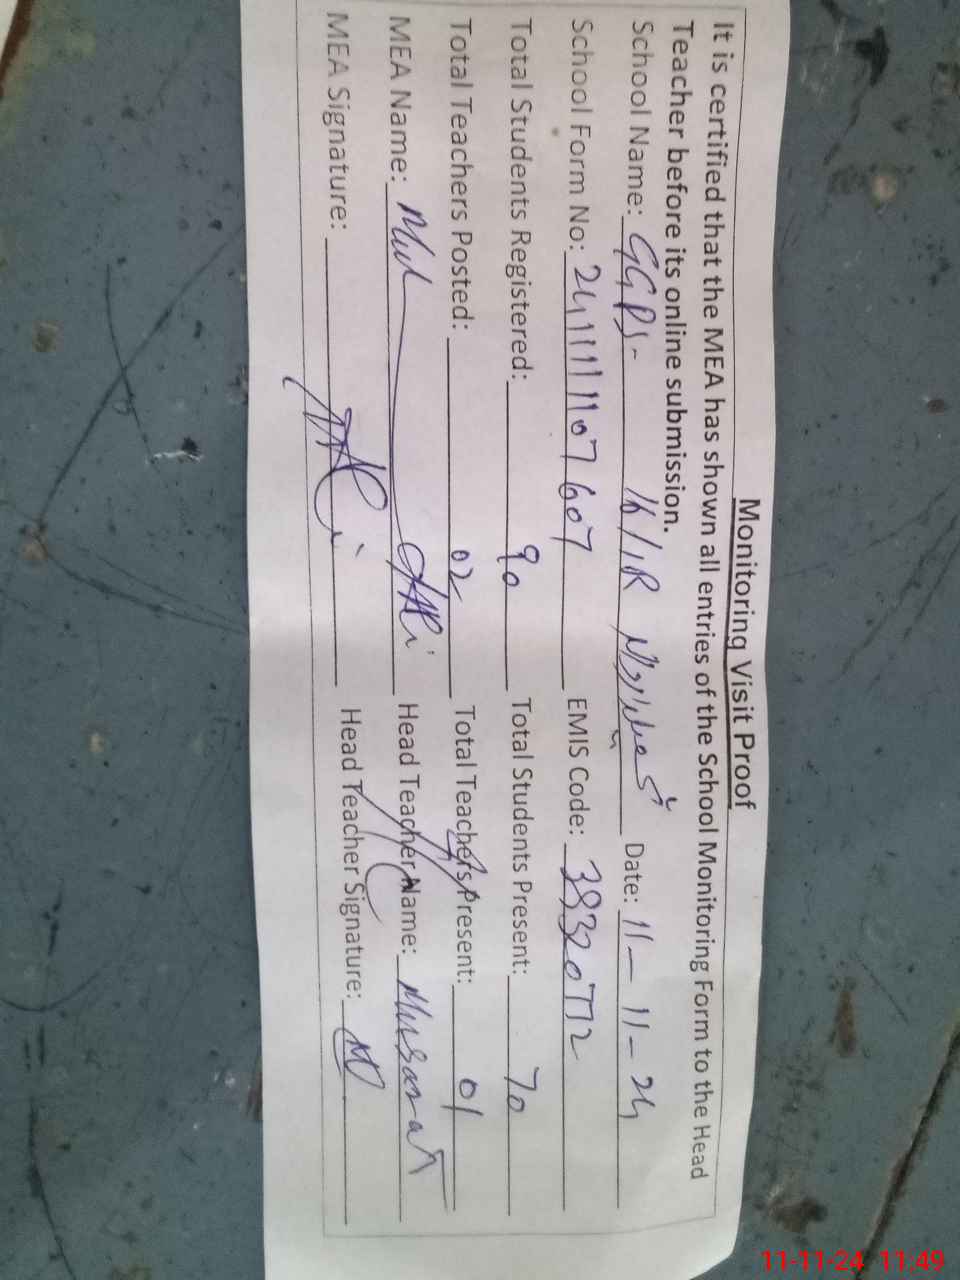 Monitoring Visit Proof
It is certified that the MEA has shown all entries of the School Monitoring Form to the Head
Teacher before its online submission.
School Name: GGPS- 16/1R Date: 11-11-24
School Form No: 241111107607 EMIS Code: 39320772
Total Students Registered: 90 Total Students Present: 70
Total Teachers Posted: 02 Total Teachers Present: 01
MEA Name: Head Teacher Name: Musarat
MEA Signature: Head Teacher Signature:
11-11-24 11:49